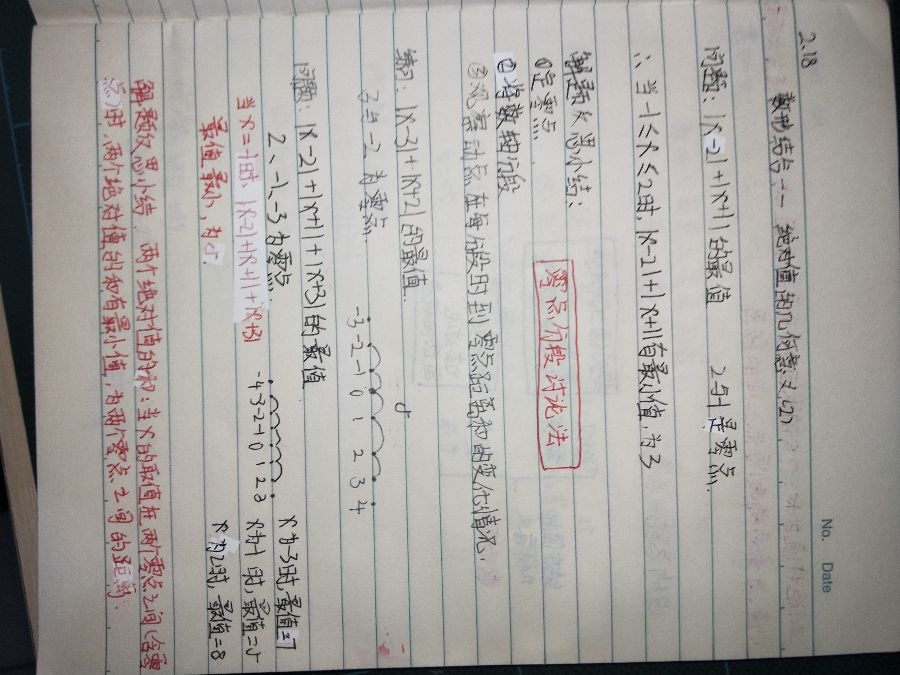 No.
Date
2.18 数形结合一一 绝对值的几何意义(2)
问题: |x-2|+|x+1|的最值 2与-1是零点.
∴当-1≤x≤2时, |x-2|+|x+1|有最小值,为3
解题反思小结:
①定零点
②将数轴分段
零点分段讨论法
③观察动点在每个段时到零点距离和的变化情况.
练习: |x-3|+|x+2|的最值. 5
3与-2为零点
-3 -2 -1 0 1 2 3 4
问题: |x-2|+|x+1|+|x+3|的最值
2、-1、-3为零点.
当x=-1时, |x-2|+|x+1|+|x+3|
最值最小,为5.
-4 -3 -2 -1 0 1 2 3
x为-3时,最值=7
x为-1时,最值=5
x为2时,最值=8
解题反思小结. 两个绝对值的和:当x的取值在两个零点之间(含零
点)时,两个绝对值的和有最小值,为两个零点之间的距离.